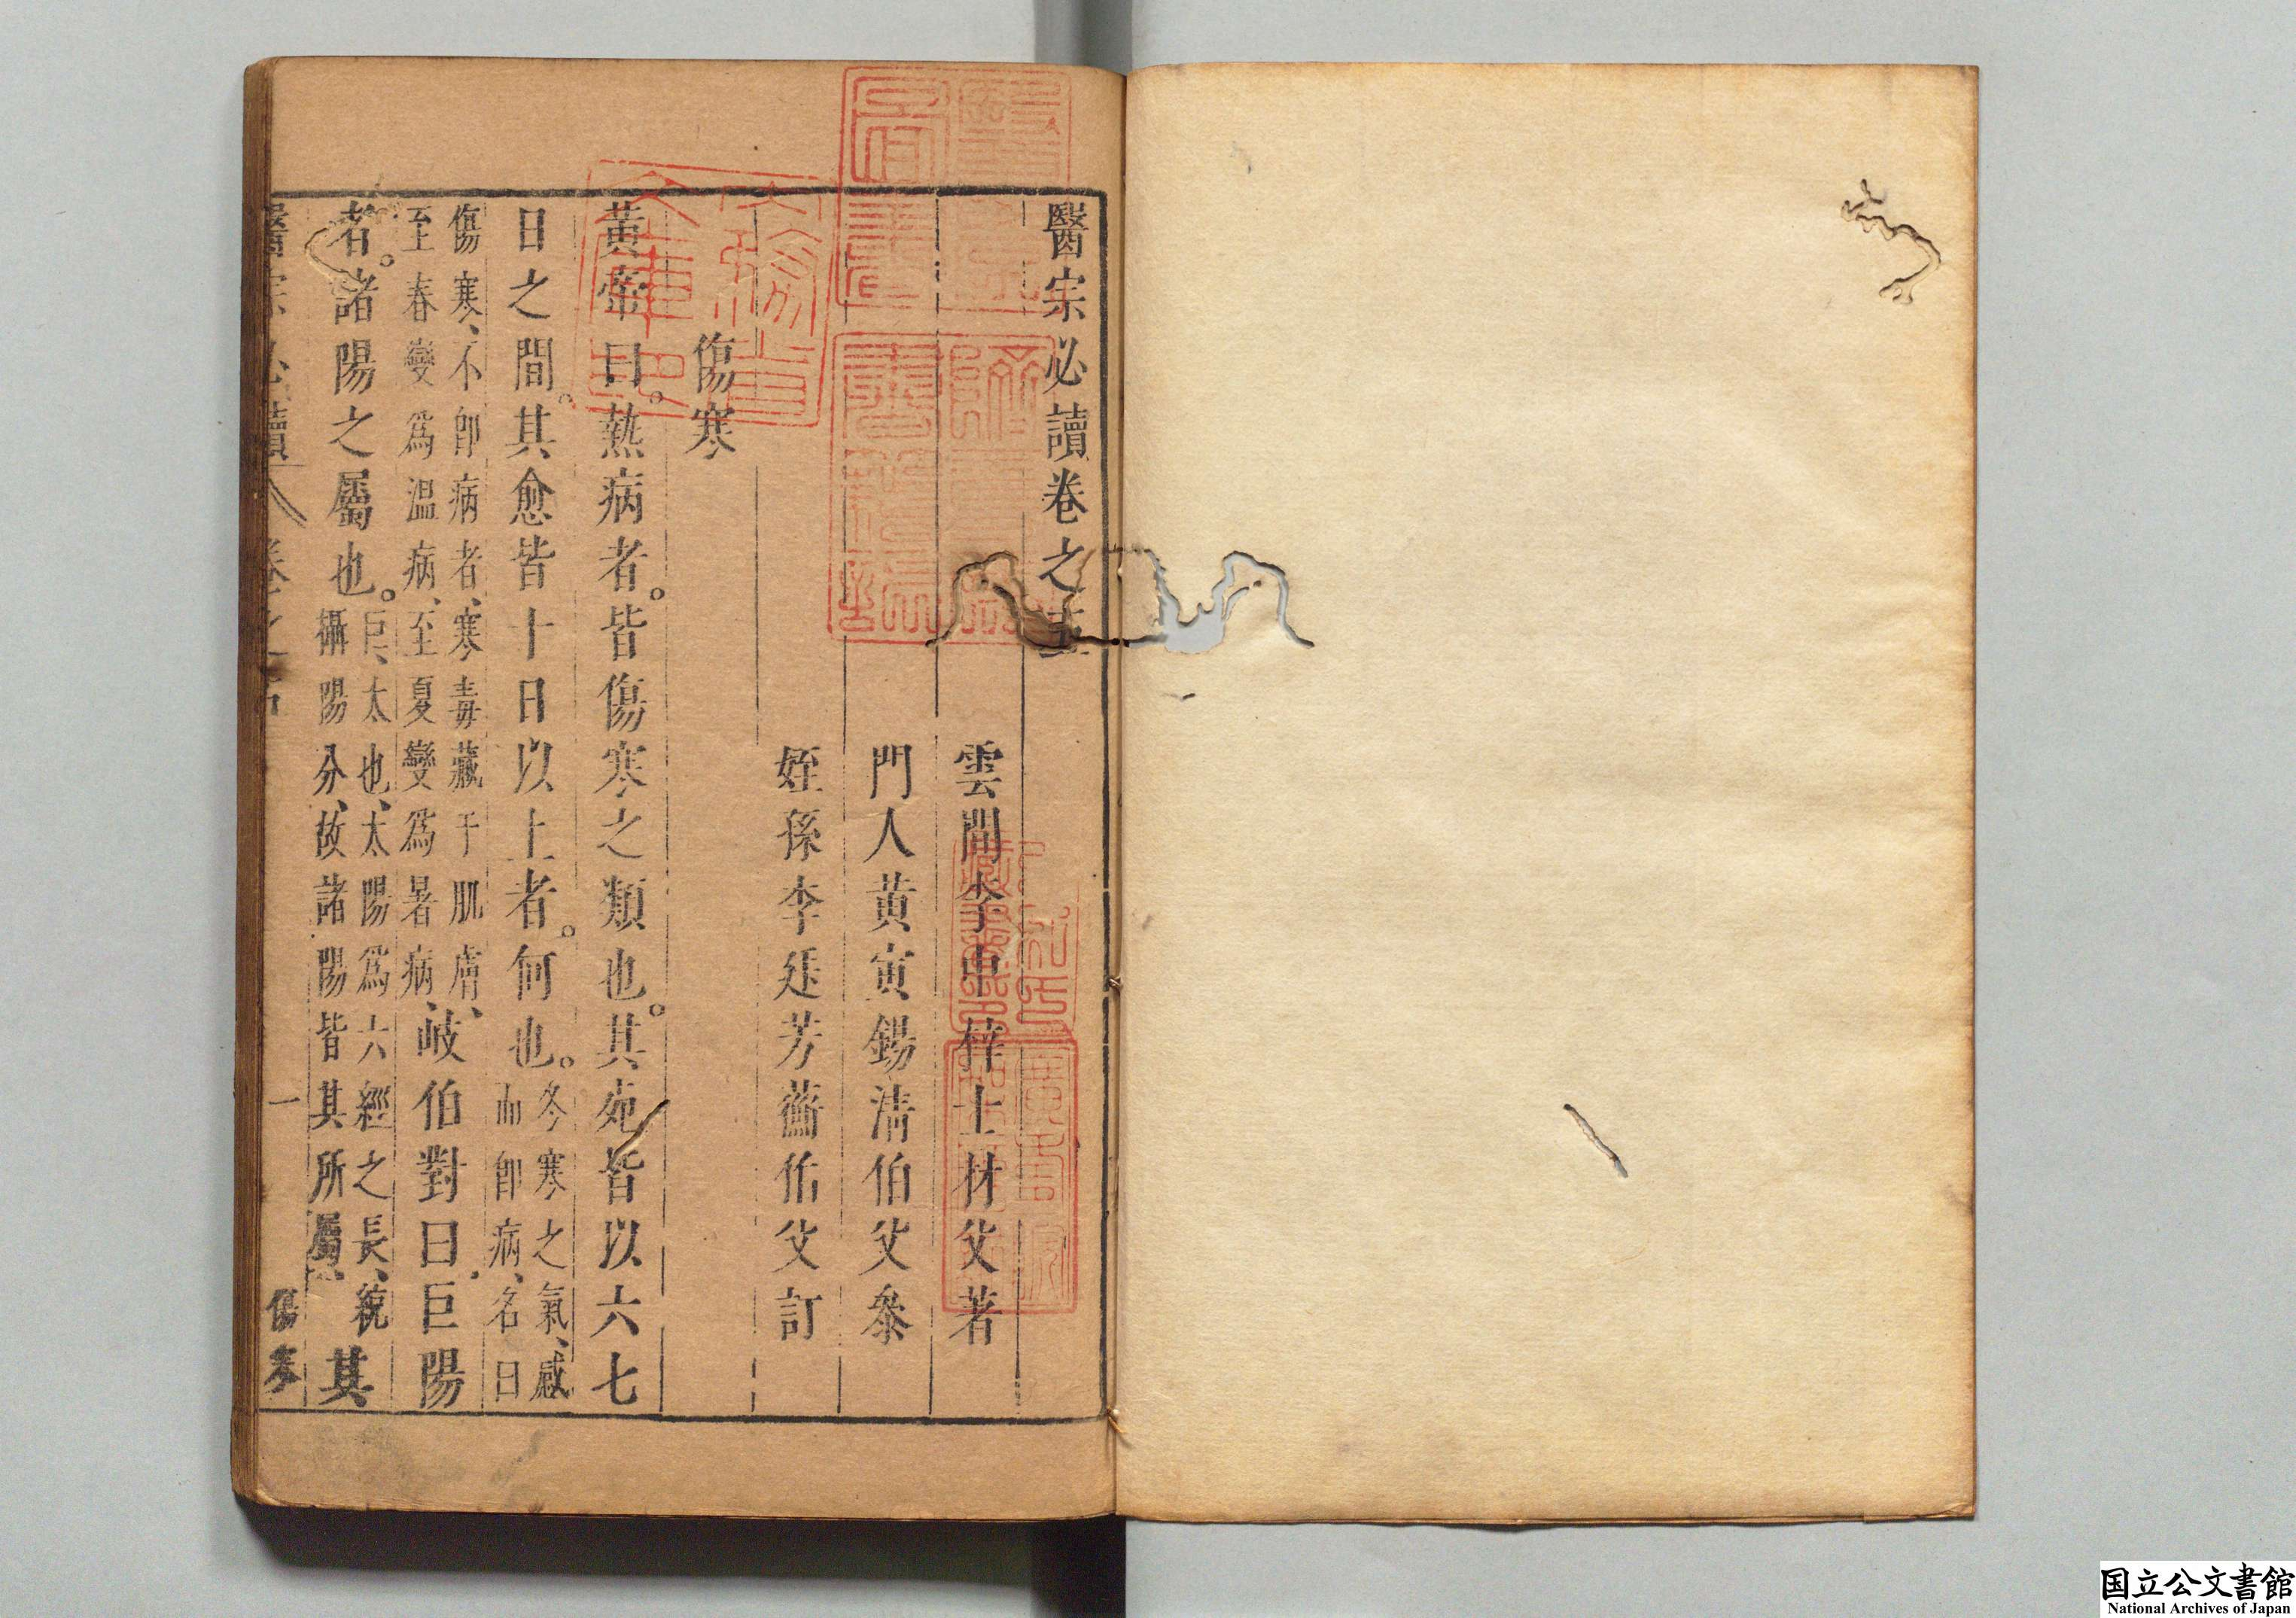 醫宗必讀卷之五
雲間李中梓士材父著
門人黃寅錫清伯父參
姪孫李廷芳蘅伯父訂
傷寒
黃帝曰。熱病者。皆傷寒之類也。其死皆以六七
日之間。其愈皆十日以上者。何也。冬寒之氣、感而即病、名曰
傷寒、不即病者、寒毒藏于肌膚、至春變爲溫病、至夏變爲暑病、岐伯對曰巨陽
者。諸陽之屬也。巨、太也、太陽爲六經之長、統攝陽分、故諸陽皆其所屬、其
醫宗必讀 卷之五 一 傷寒
国立公文書館
National Archives of Japan